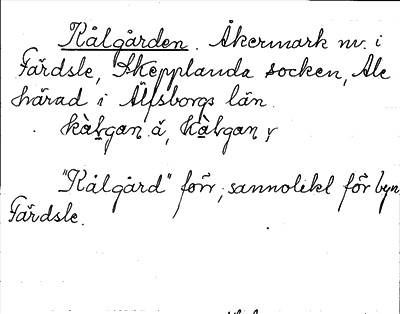 Kålgården. Åkermark nv. i
Färdsle, Skepplanda socken, Ale
härad i Älfsborgs län.
kàḷgan å, Kàḷgan v
"Kålgård" förr, sannolikl för byn
Färdsle.